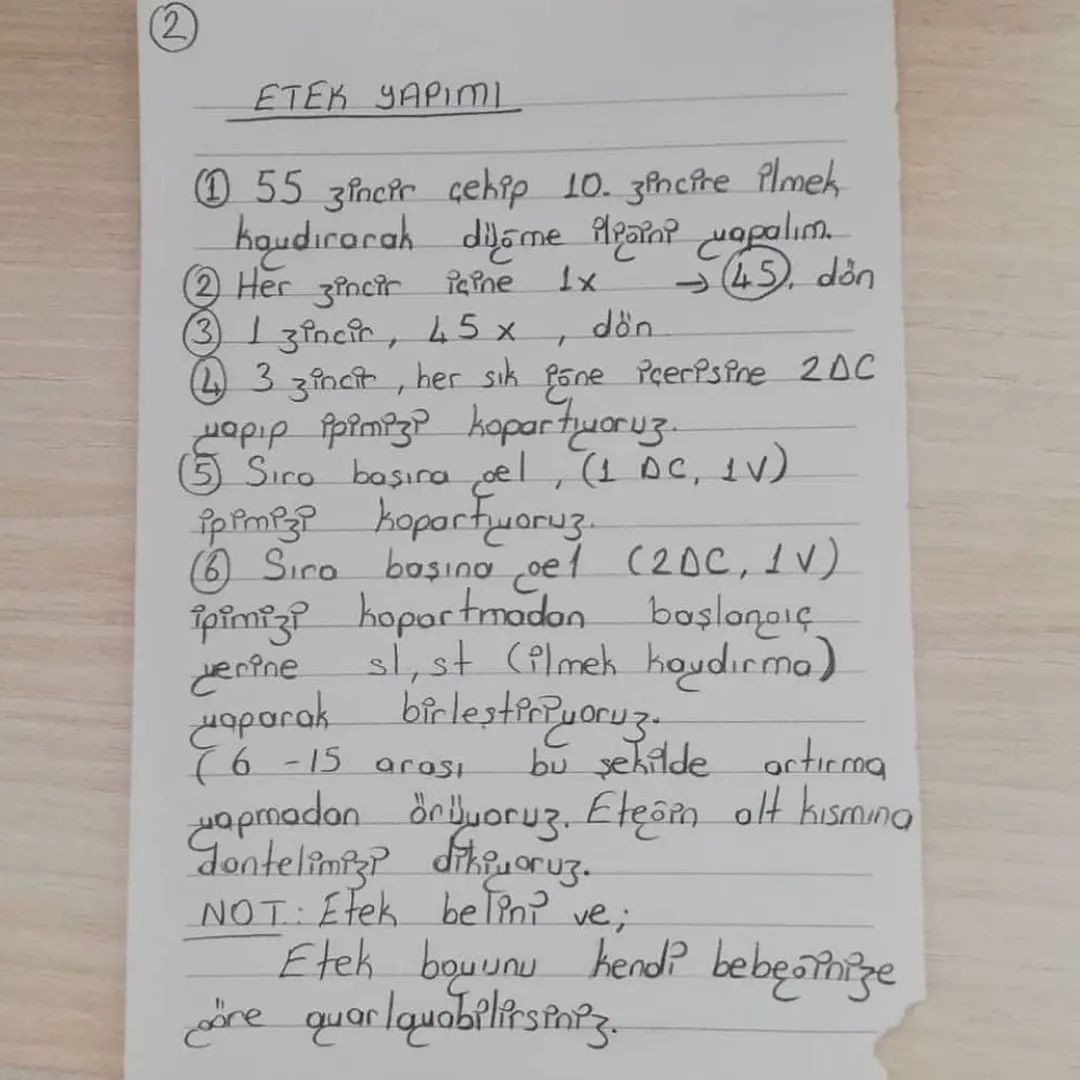 2
ETEK YAPIMI
1 55 zincir çekip 10. zincire ilmek
kaydırarak düğme iliğini yapalım.
2 Her zincir içine 1x → 45. dön
3 1 zincir, 45 x, dön
4 3 zincir, her sık iğne içerisine 2DC
yapıp ipimizi kopartıyoruz.
5 Sıra başına gel, (1 DC, 1V)
ipimizi kopartıyoruz.
6 Sıra başına gel (2DC, 1V)
ipimizi kopartmadan başlangıç
yerine sl, st (ilmek kaydırma)
yaparak birleştiriyoruz.
(6 - 15 arası bu şekilde artırma
yapmadan örüyoruz. Eteğin alt kısmına
dantelimizi dikiyoruz.
NOT: Etek belini ve;
Etek boyunu kendi bebeğinize
göre ayarlayabilirsiniz.